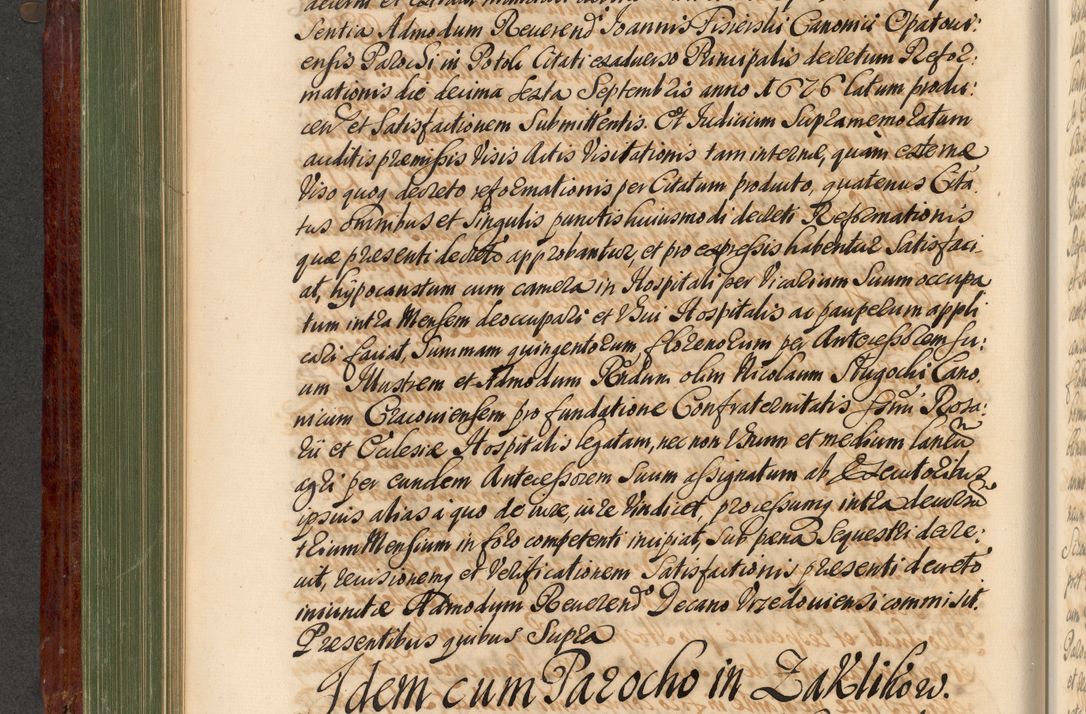 Sentia Admodum Reuerend Joannis Fisierski Canonici Opatoui:
ensis Parochi in Potok Citati exaduerso Principalis decretum Refor:
mationis die decima sexta Septembris anno 1676 latum produ:
cen et Satisfactionem Submittentis. Et Iudicium Supramemoratum
auditis præmissis Visis Actis Visitationis tam internæ, quam externæ
Viso quoq decreto reformationis per Citatum producto, quatenus Cita
tus omnibus et singulis punctis huiusmodi decreti Reformationis
quæ præsenti decreto approbantur, et pro expressis habentur Satisfaci
at, hypocaustum cum camera in Hospitali per Vicarium Suum occupa
tum intra Mensem deoccupari et Vsui Hospitalis ac pauperum appli
cari faciat, Summam quingentorum florenorum per Antecessorem su:
um Illustrem et Admodum Rndum olim Nicolaum Sługocki Cano:
nicum Cracouiensem pro fundatione Confraternitatis Ssmi Rosa:
rii et Ecclesiæ Hospitalis legatam, nec non Vnum et medium laneū
agri per eundem Antecessorem Suum assignatum ab Executoribus
ipsius alias a quo de iure, iure Vindicet, processumq intra decursū
trium Mensium in foro competenti incipiat, Sub pæna Sequestri decre:
uit, reuisionemq et Verificationem Satisfactionis præsenti decreto
iniunctæ Admodum Reuerend Decano Vrzedouiensi commisit.
Præsentibus quibus Supra
Idem cum Parocho in Zaklikow.